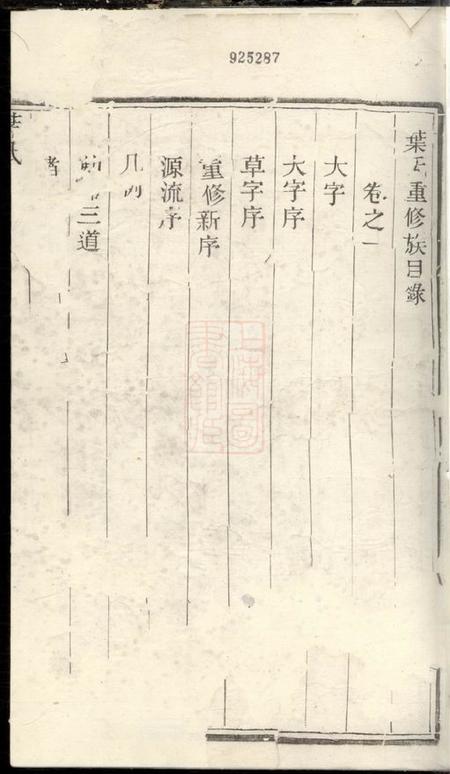 925287
葉氏重修族目錄
卷之一
大字
大字序
草字序
重修新序
源流序
凡例
三道
葉氏